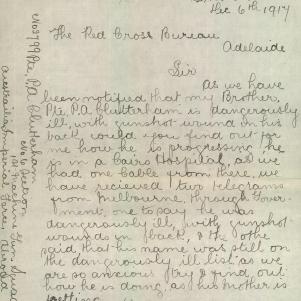 Dec 6th 1917
The Red Cross Bureau
Adelaide
Sir
As we have
been notified that my Brother,
Pte. P.A. Clutterham is dangerously
ill, with gunshot wound in his
back, could you find out for
me how he is progressing, he
is in a Cairo Hospital, as we
had one Cable from there, we
have recieved two telegrams
from Melbourne, through Govern-
ment, one to say he was
dangerously ill, with gunshot
wounds in back, & the other
said that his name was still on
the dangerously ill list. as we
are so anxious I try & find out
how he is doing, as his mother is
getting
Pte. P.A. Clutterham
Australian Imperial Force, Abroad